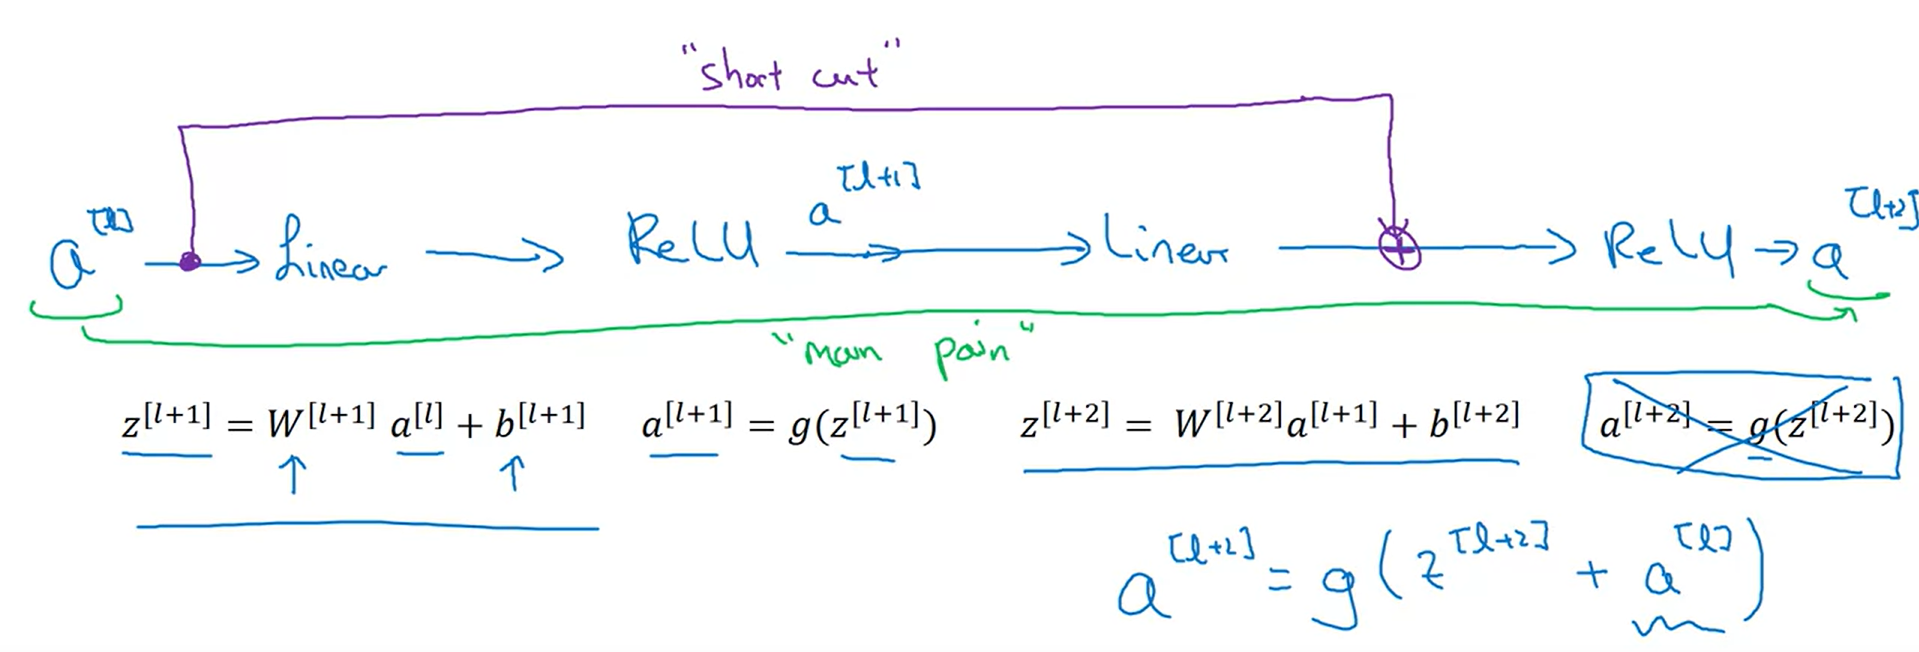 "short cut"
a^[l] → Linear → ReLU → a^[l+1] → Linear → ⊕ → ReLU → a^[l+2]
"main pain"
z^[l+1] = W^[l+1] a^[l] + b^[l+1]   a^[l+1] = g(z^[l+1])   z^[l+2] = W^[l+2]a^[l+1] + b^[l+2]   a^[l+2] = g(z^[l+2])
a^[l+2] = g(z^[l+2] + a^[l])